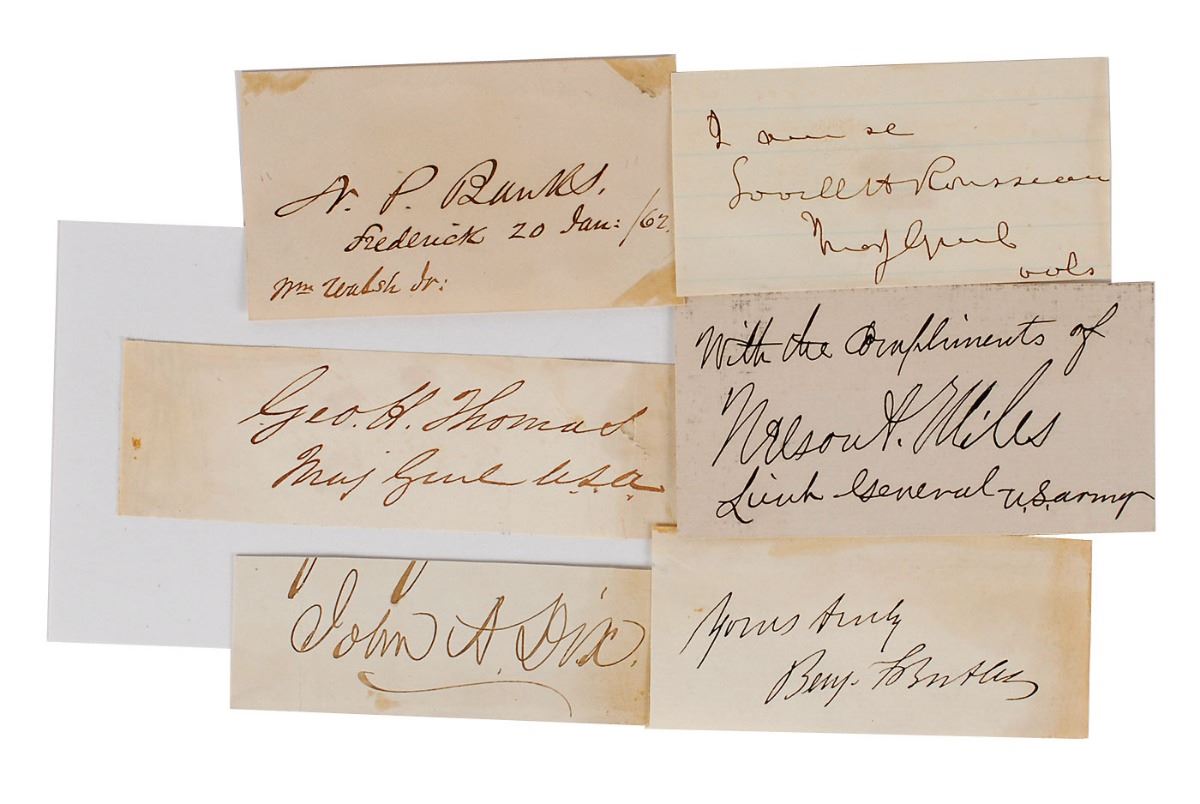 N. P. Banks.
Frederick 20 Jan: /62.
Wm Walsh Jr:
I am se
Lovell H Rousseau
Maj Genl
vols
Geo. H. Thomas
Maj Genl U.S.A.
With the compliments of
Nelson A. Miles
Lieut General U.S. army
John A. Dix.
Yours truly
Benj. F Butler